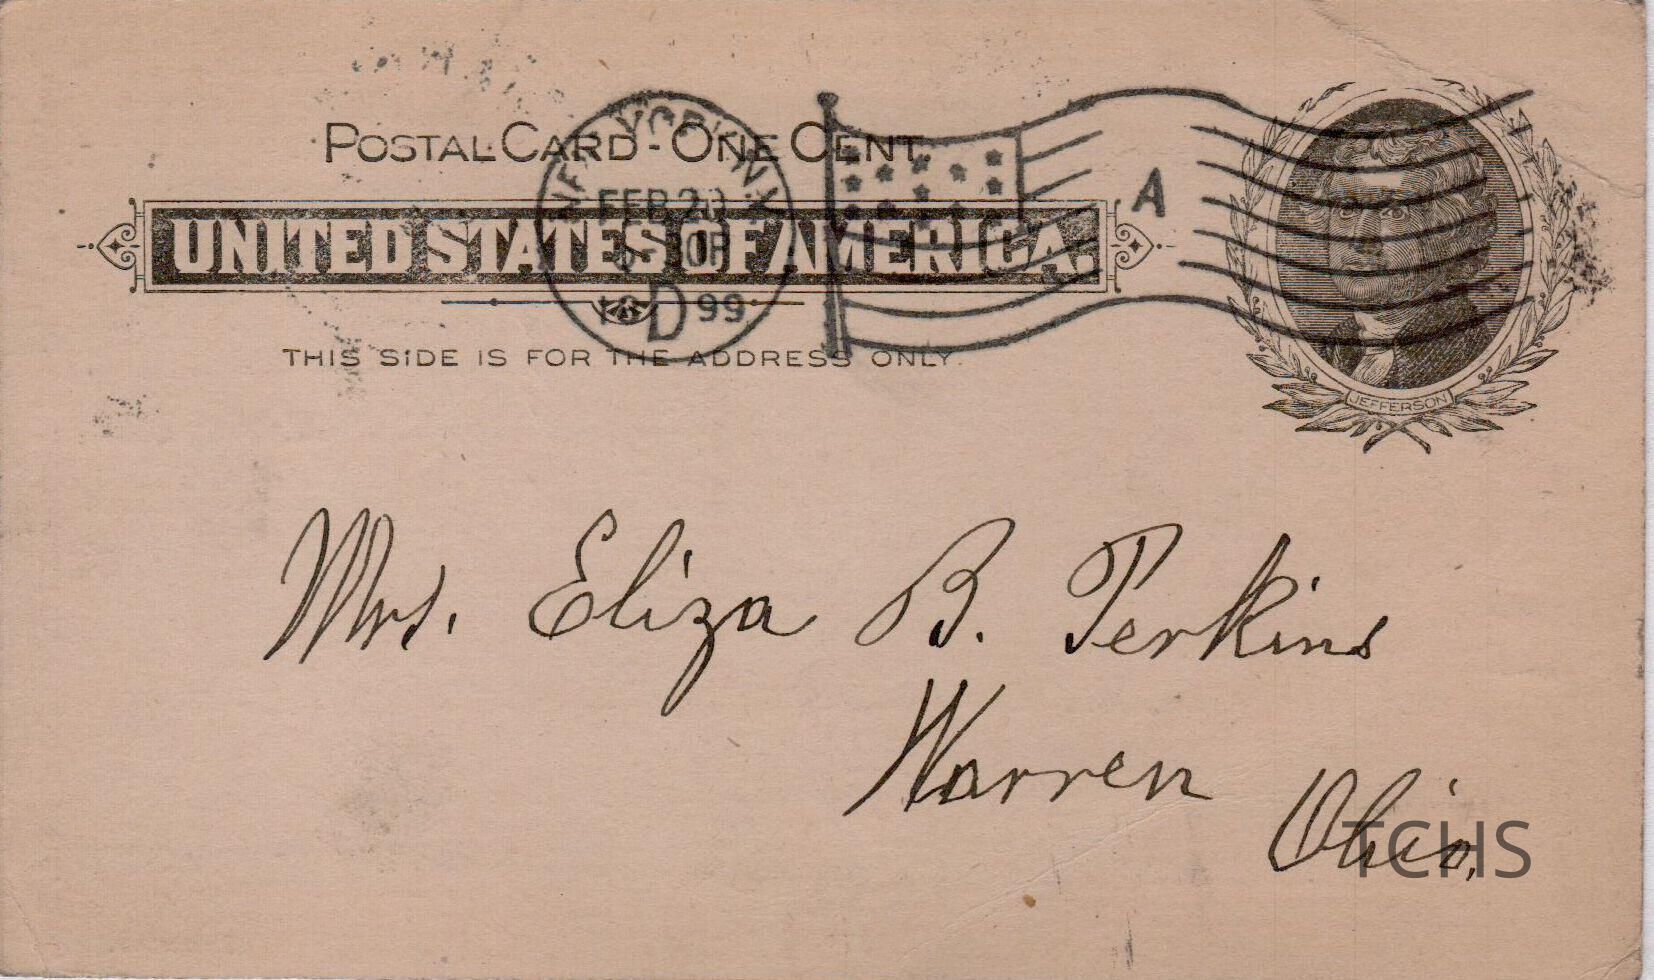 POSTAL CARD - ONE CENT.
NEW YORK, N.Y.
FEB 20
30P
D 99
A
UNITED STATES OF AMERICA.
THIS SIDE IS FOR THE ADDRESS ONLY.
JEFFERSON
Mrs. Eliza B. Perkins
Warren
Ohio,
TCHS